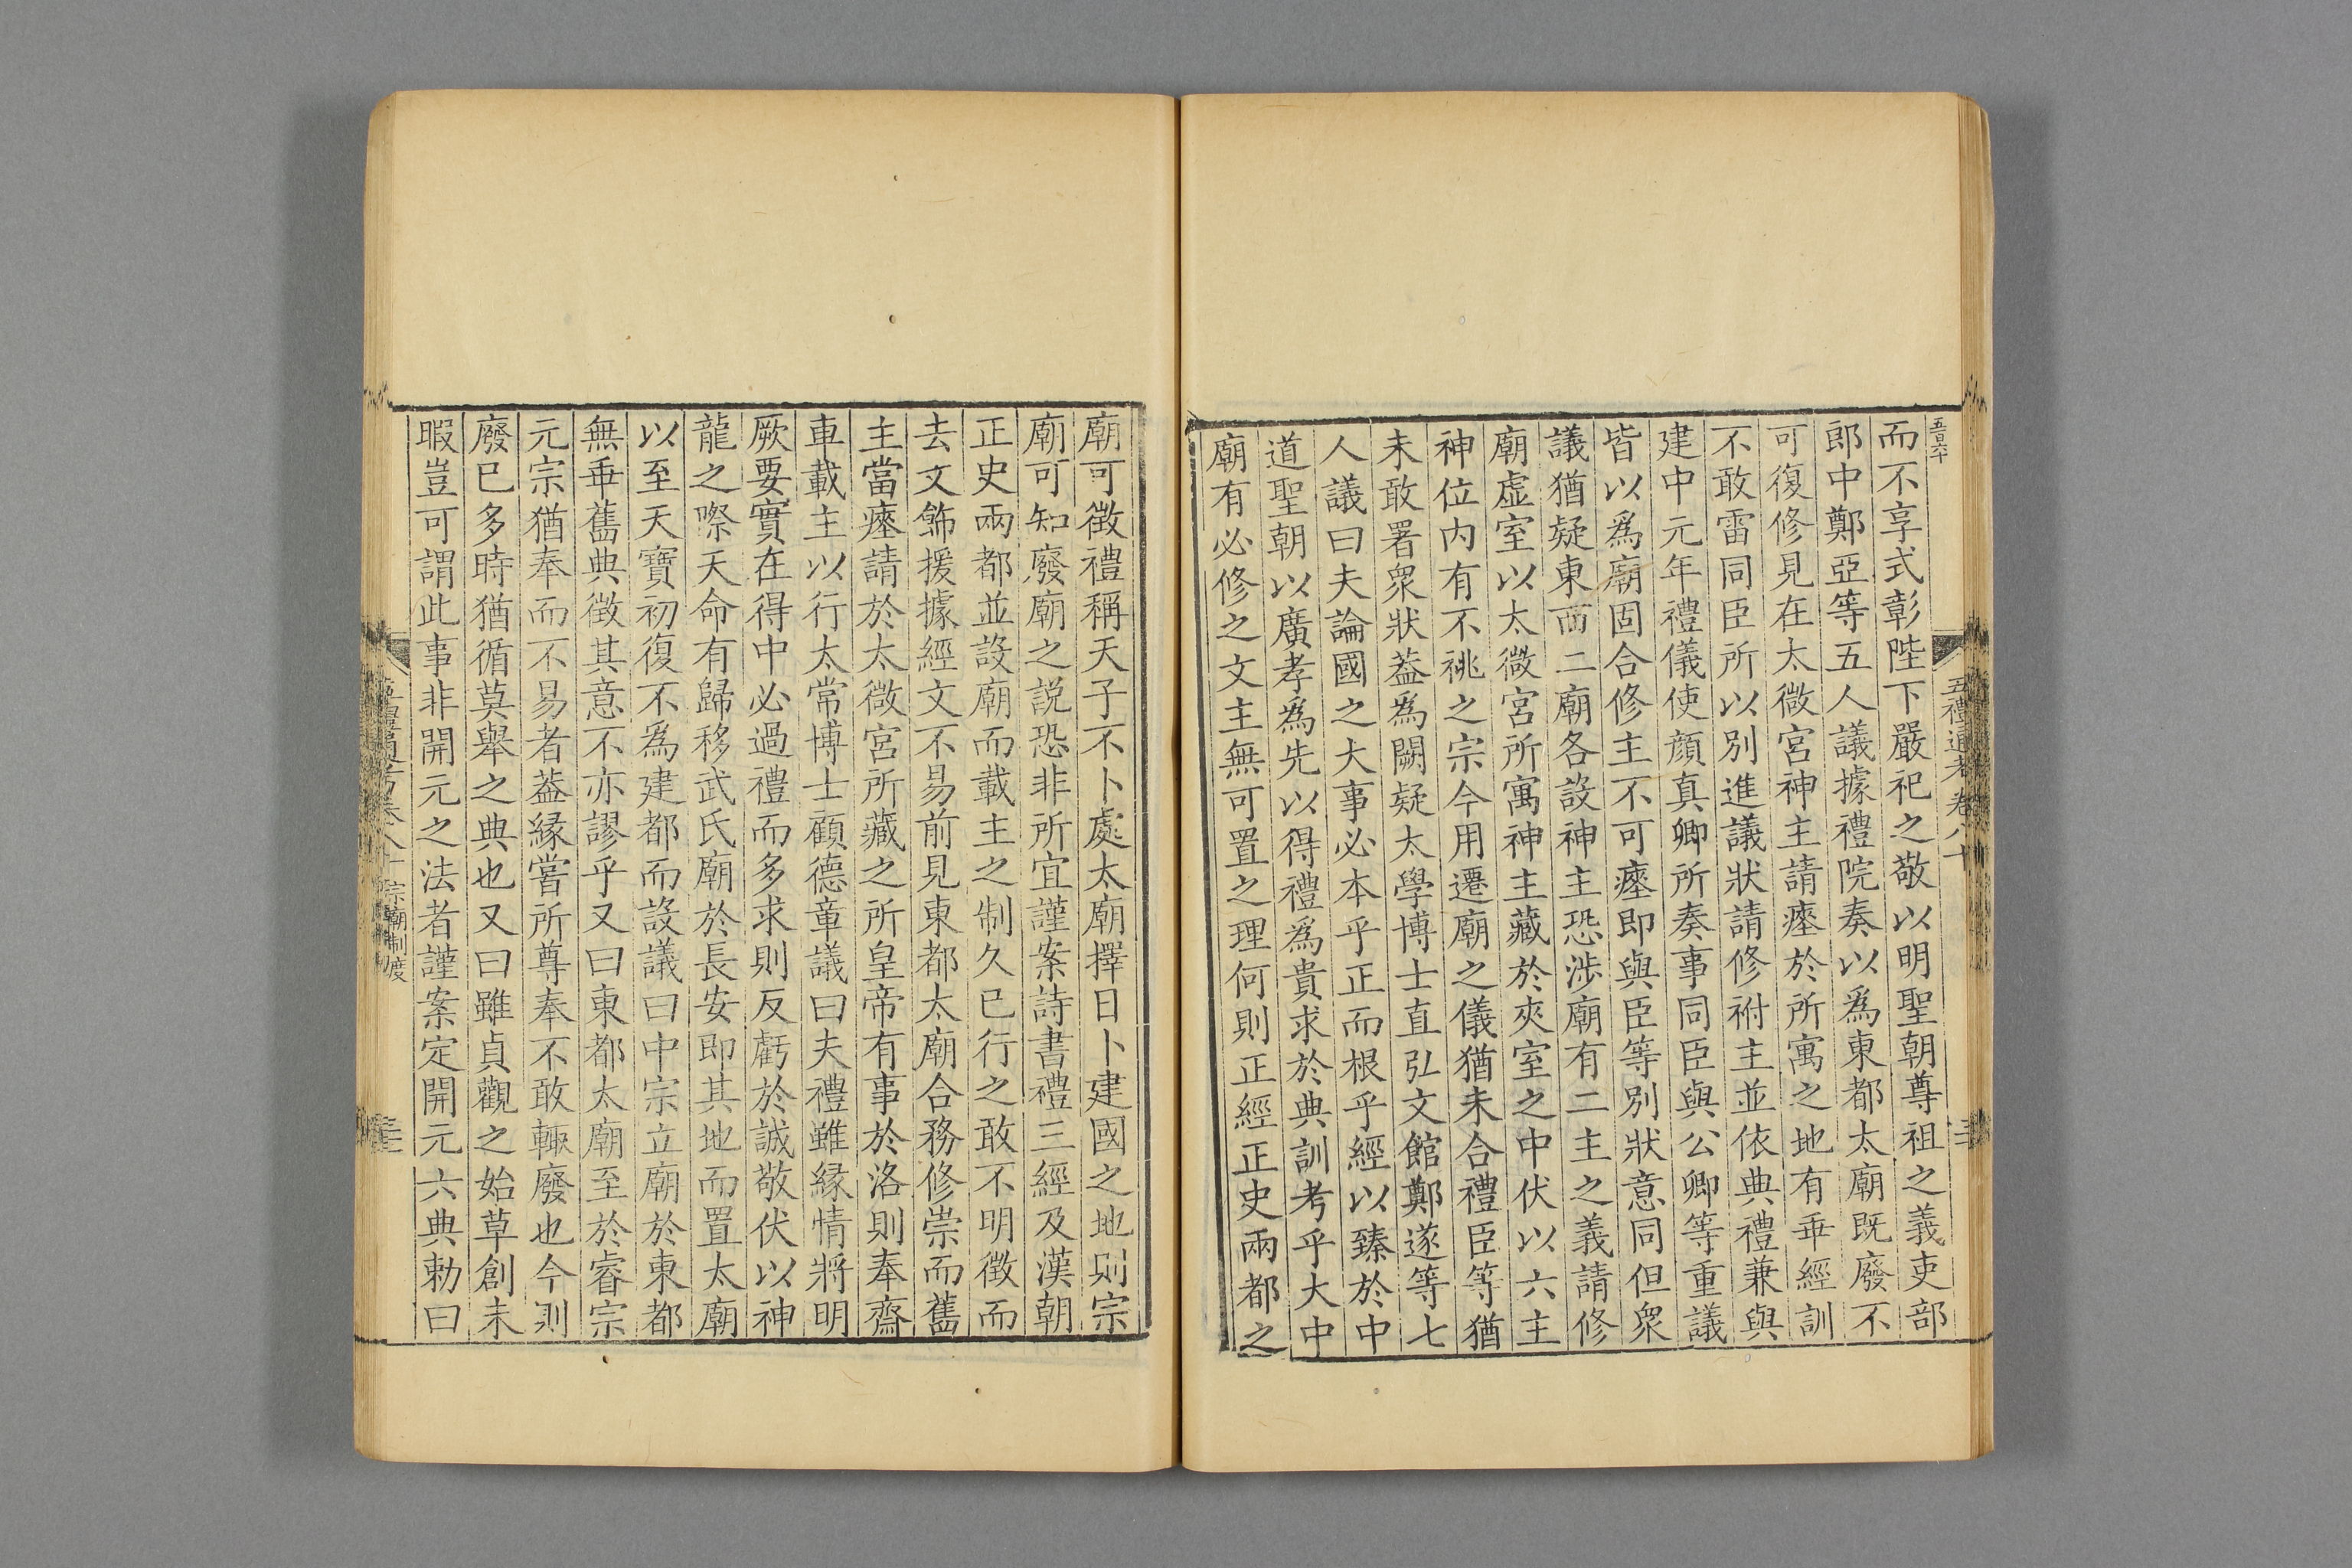 五百六十
五禮通考卷八十
而不享式彰陛下嚴祀之敬以明聖朝尊祖之義吏部
郎中鄭亞等五人議據禮院奏以爲東都太廟既廢不
可復修見在太微宮神主請瘞於所寓之地有乖經訓
不敢雷同臣所以別進議狀請修祔主並依典禮兼與
建中元年禮儀使顔真卿所奏事同臣與公卿等重議
皆以爲廟固合修主不可瘞即與臣等別狀意同但衆
議猶疑東西二廟各設神主恐涉廟有二主之義請修
廟虛室以太微宮所寓神主藏於夾室之中伏以六主
神位内有不祧之宗今用遷廟之儀猶未合禮臣等猶
未敢署衆狀葢爲闕疑太學博士直弘文館鄭遂等七
人議曰夫論國之大事必本乎正而根乎經以臻於中
道聖朝以廣孝爲先以得禮爲貴求於典訓考乎大中
廟有必修之文主無可置之理何則正經正史兩都之
廟可徵禮稱天子不卜處太廟擇日卜建國之地則宗
廟可知廢廟之説恐非所宜謹案詩書禮三經及漢朝
正史兩都並設廟而載主之制久已行之敢不明徵而
去文飾援據經文不易前見東都太廟合務修崇而舊
主當瘞請於太微宮所藏之所皇帝有事於洛則奉齋
車載主以行太常博士顧德章議曰夫禮雖緣情將明
厥要實在得中必過禮而多求則反虧於誠敬伏以神
龍之際天命有歸移武氏廟於長安即其地而置太廟
以至天寶初復不爲建都而設議曰中宗立廟於東都
無乖舊典徵其意不亦謬乎又曰東都太廟至於睿宗
元宗猶奉而不易者葢緣嘗所尊奉不敢輙廢也今則
廢已多時猶循莫舉之典也又曰雖貞觀之始草創未
暇豈可謂此事非開元之法者謹案定開元六典勅曰
宗廟制度